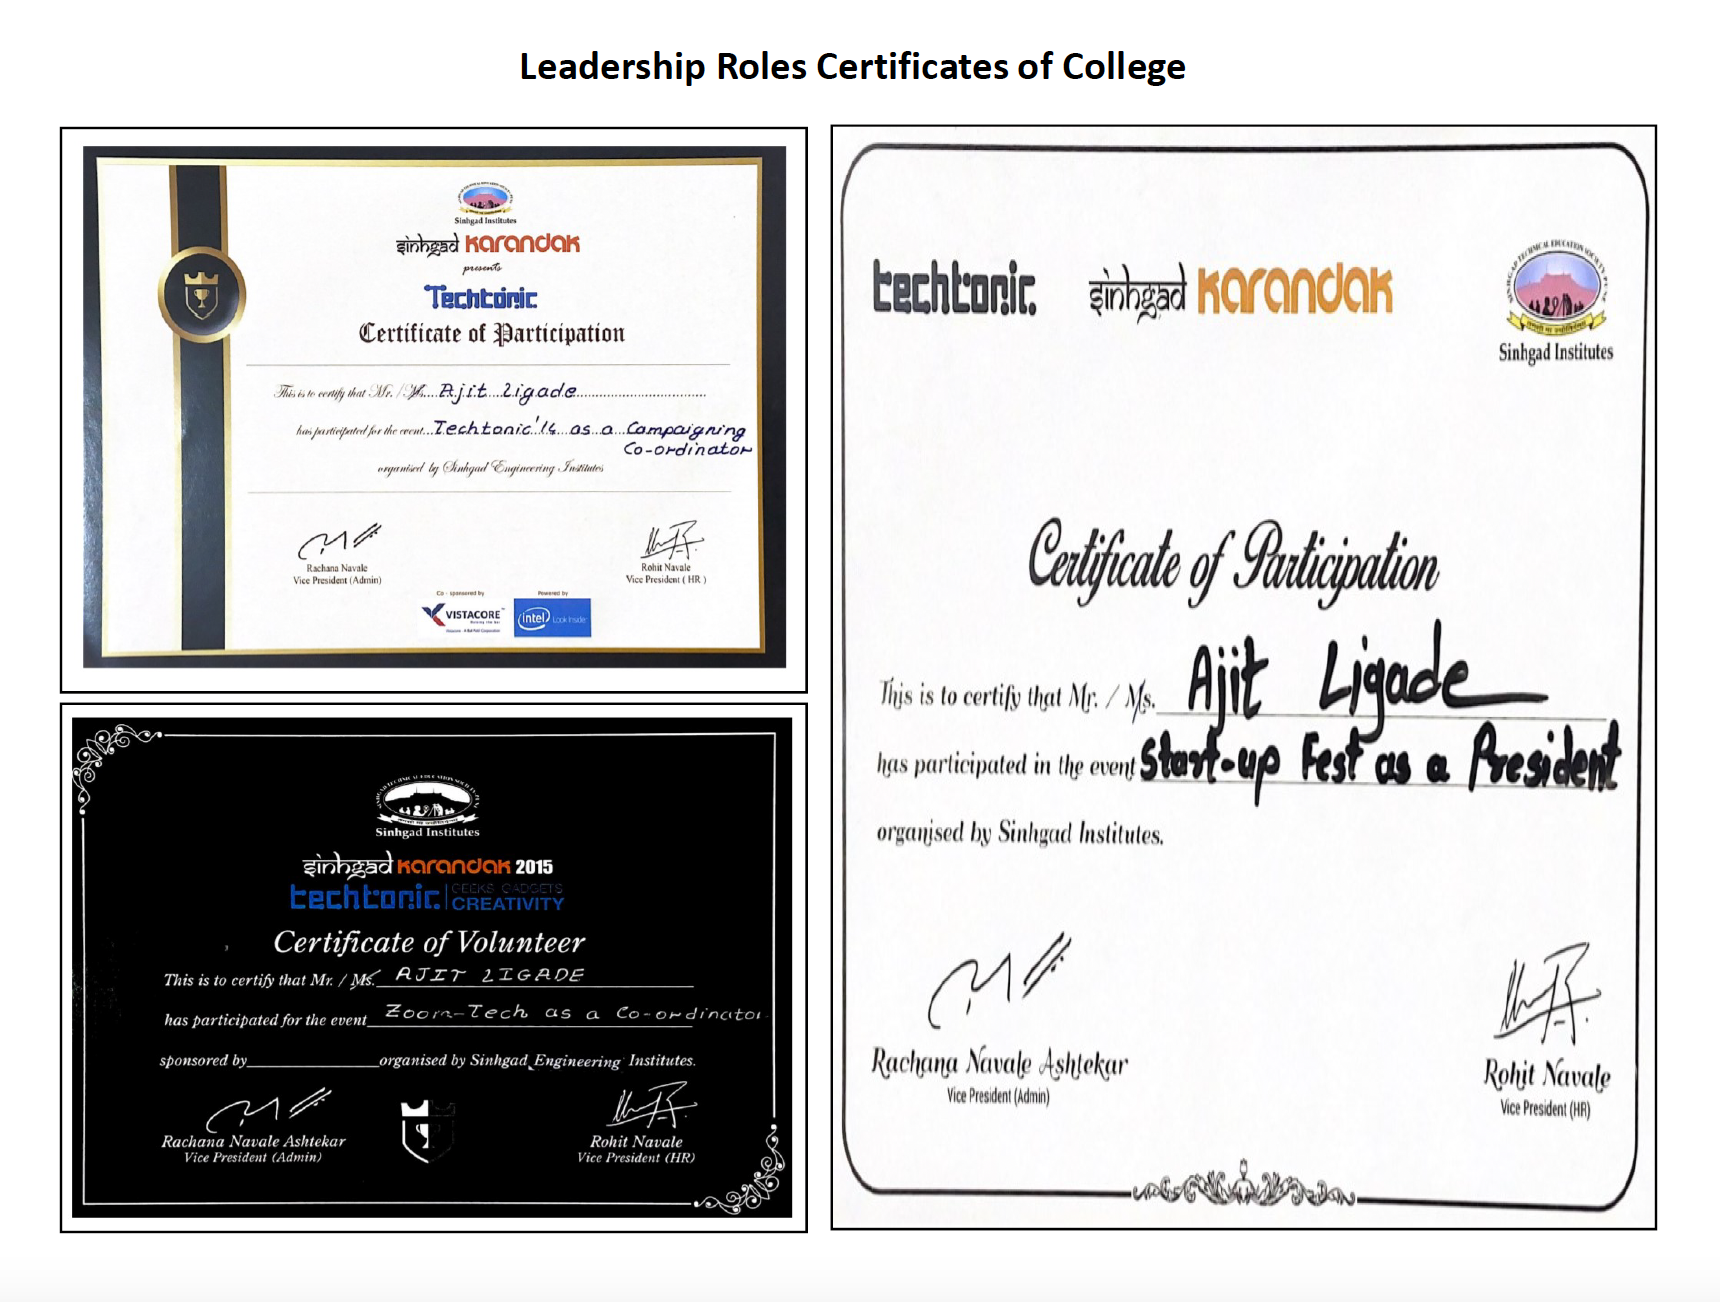 Leadership Roles Certificates of College
Sinhgad Institutes
sinhgad karandak
presents
Techtonic
Certificate of Participation
This is to certify that Mr. / Ms. Ajit Ligade
has participated for the event Techtonic'14 as a Campaigning
Co-ordinator
organised by Sinhgad Engineering Institutes
Rachana Navale
Vice President (Admin)
Rohit Navale
Vice President ( HR )
Co - sponsored by
VISTACORE
Powered by
intel Look Inside
SINHGAD TECHNICAL EDUCATION SOCIETY
Sinhgad Institutes
sinhgad karandak 2015
techtonic. GEEKS GADGETS
CREATIVITY
Certificate of Volunteer
This is to certify that Mr. / Ms. AJIT LIGADE
has participated for the event Zoom-Tech as a Co-ordinator
sponsored by organised by Sinhgad Engineering Institutes.
Rachana Navale Ashtekar
Vice President (Admin)
Rohit Navale
Vice President (HR)
techtonic. sinhgad karandak
SINHGAD TECHNICAL EDUCATION SOCIETY
Sinhgad Institutes
Certificate of Participation
This is to certify that Mr. / Ms. Ajit Ligade
has participated in the event Start-up Fest as a President
organised by Sinhgad Institutes.
Rachana Navale Ashtekar
Vice President (Admin)
Rohit Navale
Vice President (HR)